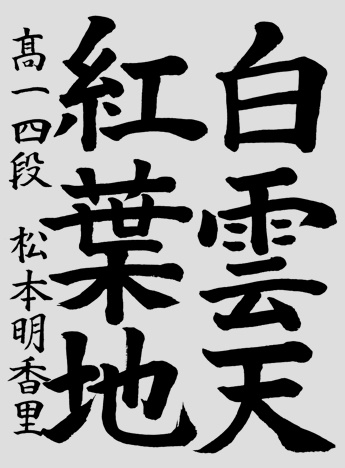 白雲天
紅葉地
髙一四段 松本明香里